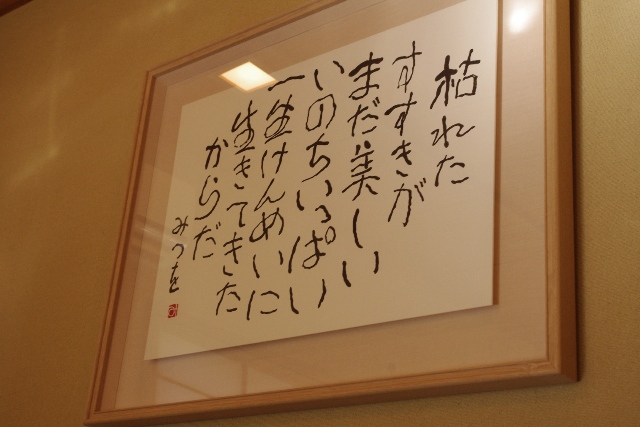 枯れた
すすきが
まだ美しい
いのちいっぱい
一生けんめいに
生きてきた
からだ
みつを